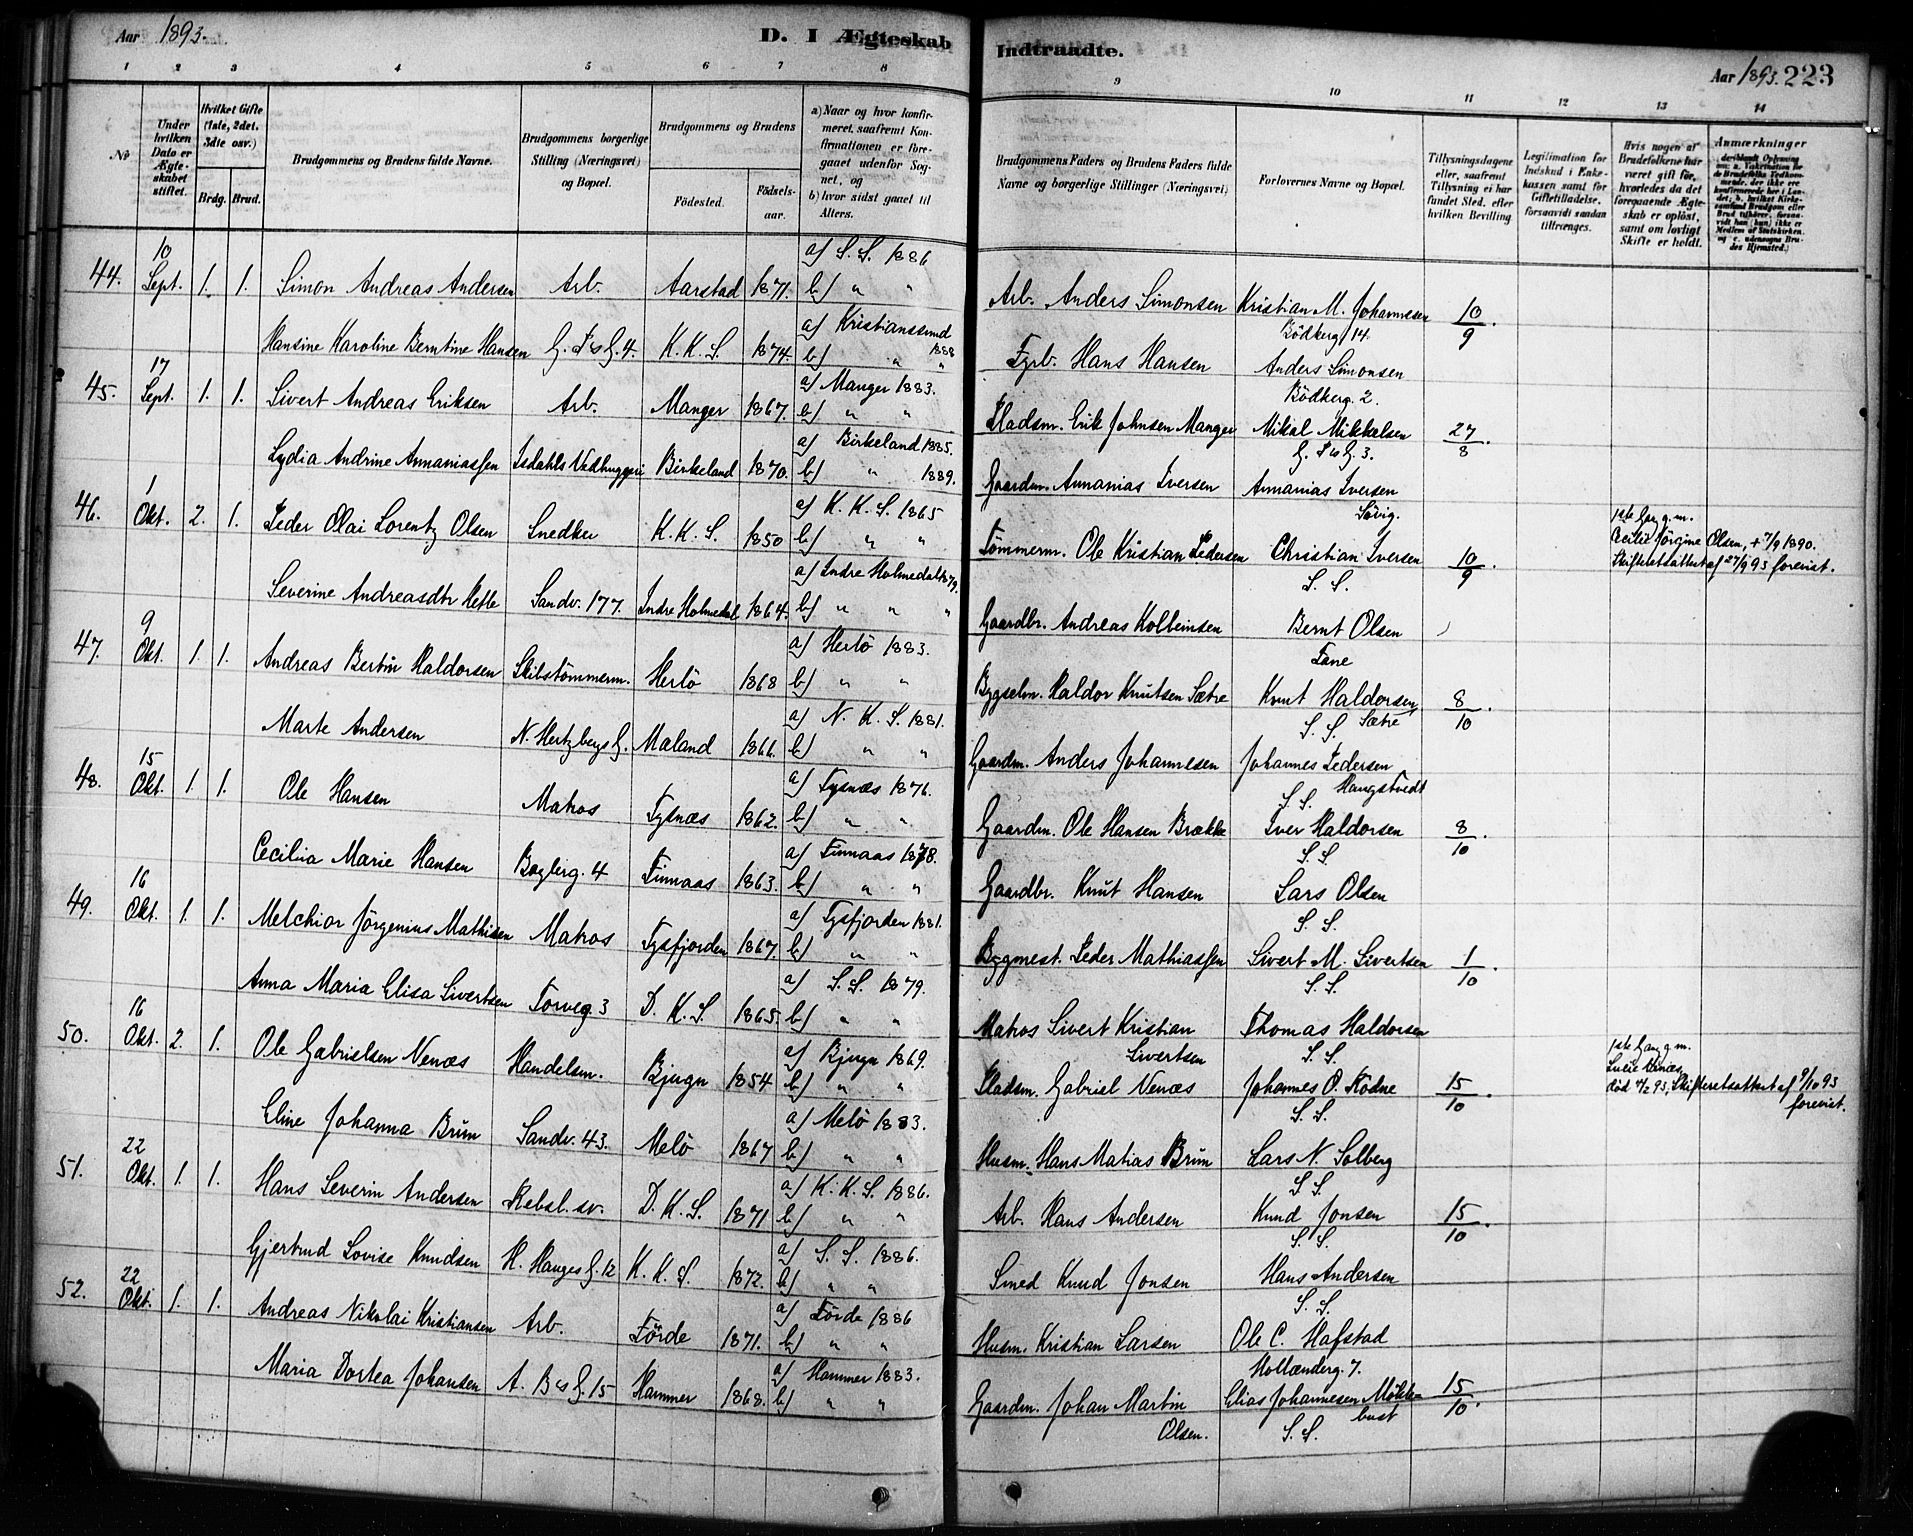 Aar 1893.
D. I Ægteskab
Indtraadte.
Aar 1893. 223
1 2 3 4 5 6 7 8 9 10 11 12 13 14
№
Under hvilken Dato er Ægteskabet stiftet.
Hvilket Gifte (1ste, 2det, 3dte osv.)
Brdg. Brud.
Brudgommens og Brudens fulde Navne.
Brudgommens borgerlige Stilling (Næringsvei) og Bopæl.
Brudgommens og Brudens
Födested. Födselsaar.
a) Naar og hvor konfirmeret, saafremt Konfirmationen er foregaaet udenfor Sognet, og
b) hvor sidst gaaet til Alters.
Brudgommens Faders og Brudens Faders fulde Navne og borgerlige Stillinger (Næringsvei).
Forlovernes Navne og Bopæl.
Tillysningsdagene eller, saafremt Tillysning ei har fundet Sted, efter hvilken Bevilling
Legitimation for Indskud i Enkekassen samt for Giftetilladelse, forsaavidt saadan tiltrænges.
Hvis nogen af Brudefolkene har været gift för, hvorledes da det foregaaende Ægteskab er oplöst, samt om lovligt Skifte er holdt.
Anmærkninger
44. 10 Sept. 1. 1. Simon Andreas Andersen Arb. Aarstad 1871. a) S. S. 1886 b) " " Arb. Anders Simonsen Kristian M. Johannesen Bödkerg. 14. 10/9.
Hansine Karoline Berntine Hansen K. K. S. 1874. a) Kristianssund 1888 b) " " Fyrb. Hans Hansen Anders Simonsen Bödkerg. 2.
45. 17 Sept. 1. 1. Sivert Andreas Eriksen Arb. Manger 1867. a) Manger 1883. b) " " Pladsm. Erik Johnsen Manger Mikal Mikkelsen 27/8.
Lydia Andrine Annaniassen Isdahls Vedhuggeri Birkeland 1870. a) Birkeland 1885. b) " 1889. Gaardm. Annanias Iversen Annanias Iversen Sövig.
46. 1 Okt. 2. 1. Peder Olai Lorentz Olsen Snedker K. K. S. 1850 a) K. K. S. 1865 b) " " Tömmerm. Ole Kristian Pedersen Christian Iversen S. S. 10/9. 1ste Gang g. m. Cecilie Jörgine Olsen, + 7/9 1890. Skifteretsattest af 27/9 93 forevist.
Severine Andreasdtr Hefle Sandv. 177. Indre Holmedal 1864. a) Indre Holmedal 1879. b) " " " Gaardbr. Andreas Kolbeinsen Bernt Olsen Fane
47. 9 Okt. 1. 1. Andreas Bertin Haldorsen Skibstömmerm. Herlö 1868 a) Herlö 1883. b) " " Bygselm. Haldor Knutsen Sætre Knut Haldorsen S. S. Sætre 8/10.
Marte Andersen N. Hertzbergs G. Maland 1866. a) N. K. S. 1881. b) " " Gaardm. Anders Johannesen Johannes Pedersen S. S. Haugstvedt
48. 15 Okt. 1. 1. Ole Hansen Matros Tysnæs 1862. a) Tysnæs 1876. b) " " Gaardm. Ole Hansen Brække Iver Haldorsen S. S. 8/10.
Cecilia Marie Hansen Baglerg. 4 Finnaas 1863. a) Finnaas 1878. b) " " Gaardbr. Knut Hansen Lars Olsen S. S.
49. 16 Okt. 1. 1. Melchior Jörgenius Mathisen Matros Tysfjorden 1867. a) Tysfjorden 1881. b) " " Bygmest. Peder Mathiassen Sivert M. Sivertsen S. S. 1/10.
Anna Maria Elisa Sivertsen Torveg. 3 D. K. S. 1865. a) S. S. 1879. b) " " Matros Sivert Kristian Sivertsen Thomas Haldorsen S. S.
50. 16 Okt. 2. 1. Ole Gabrielsen Nenæs Handelsm. Bjugn 1854 a) Bjugn 1869. b) " " Pladsm. Gabriel Nenæs Johannes O. Rödne S. S. 15/10. 1ste Gang g. m. död 93, Skifteretsattest af 9/10 93 forevist.
Eline Johanna Brun Sandv. 43. Melö 1867 a) Melö 1883. b) " " Husm. Hans Matias Brun Lars N. Solberg S. S.
51. 22 Okt. 1. 1. Hans Severin Andersen Rebsl. sv. D. K. S. 1871 a) K. K. S. 1886. b) " " Arb. Hans Andersen Knud Jonsen S. S. 15/10.
Gjertrud Lovise Knudsen H. Hauges G. 12 K. K. S. 1872. a) S. S. 1886. b) " " Smed Knud Jonsen Hans Andersen S. S.
52. 22 Okt. 1. 1. Andreas Nikolai Kristiansen Arb. Förde 1871. a) Förde 1886 b) " " Husm. Kristian Larsen Ole C. Hafstad Hollænderg. 7. 15/10.
Maria Dortea Johansen A. Bs G. 15 Hammer 1868. a) Hammer 1883. b) " " Gaardm. Johan Martin Olsen. Elias Johannesen Möklebust S. S.